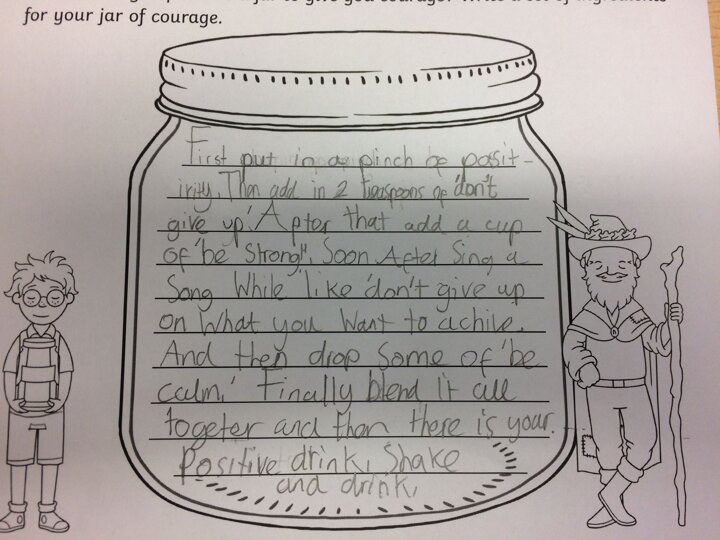 for your jar of courage.
First put in a pinch of posit-
irity. Then add in 2 teaspoons of 'don't
give up'. After that add a cup
of 'be strong". Soon After Sing a
Song While like 'don't give up
on What you Want to achive.
And then drop Some of 'be
calm.' Finally blend it all
togeter and then there is your
Positive drink. Shake
and drink.